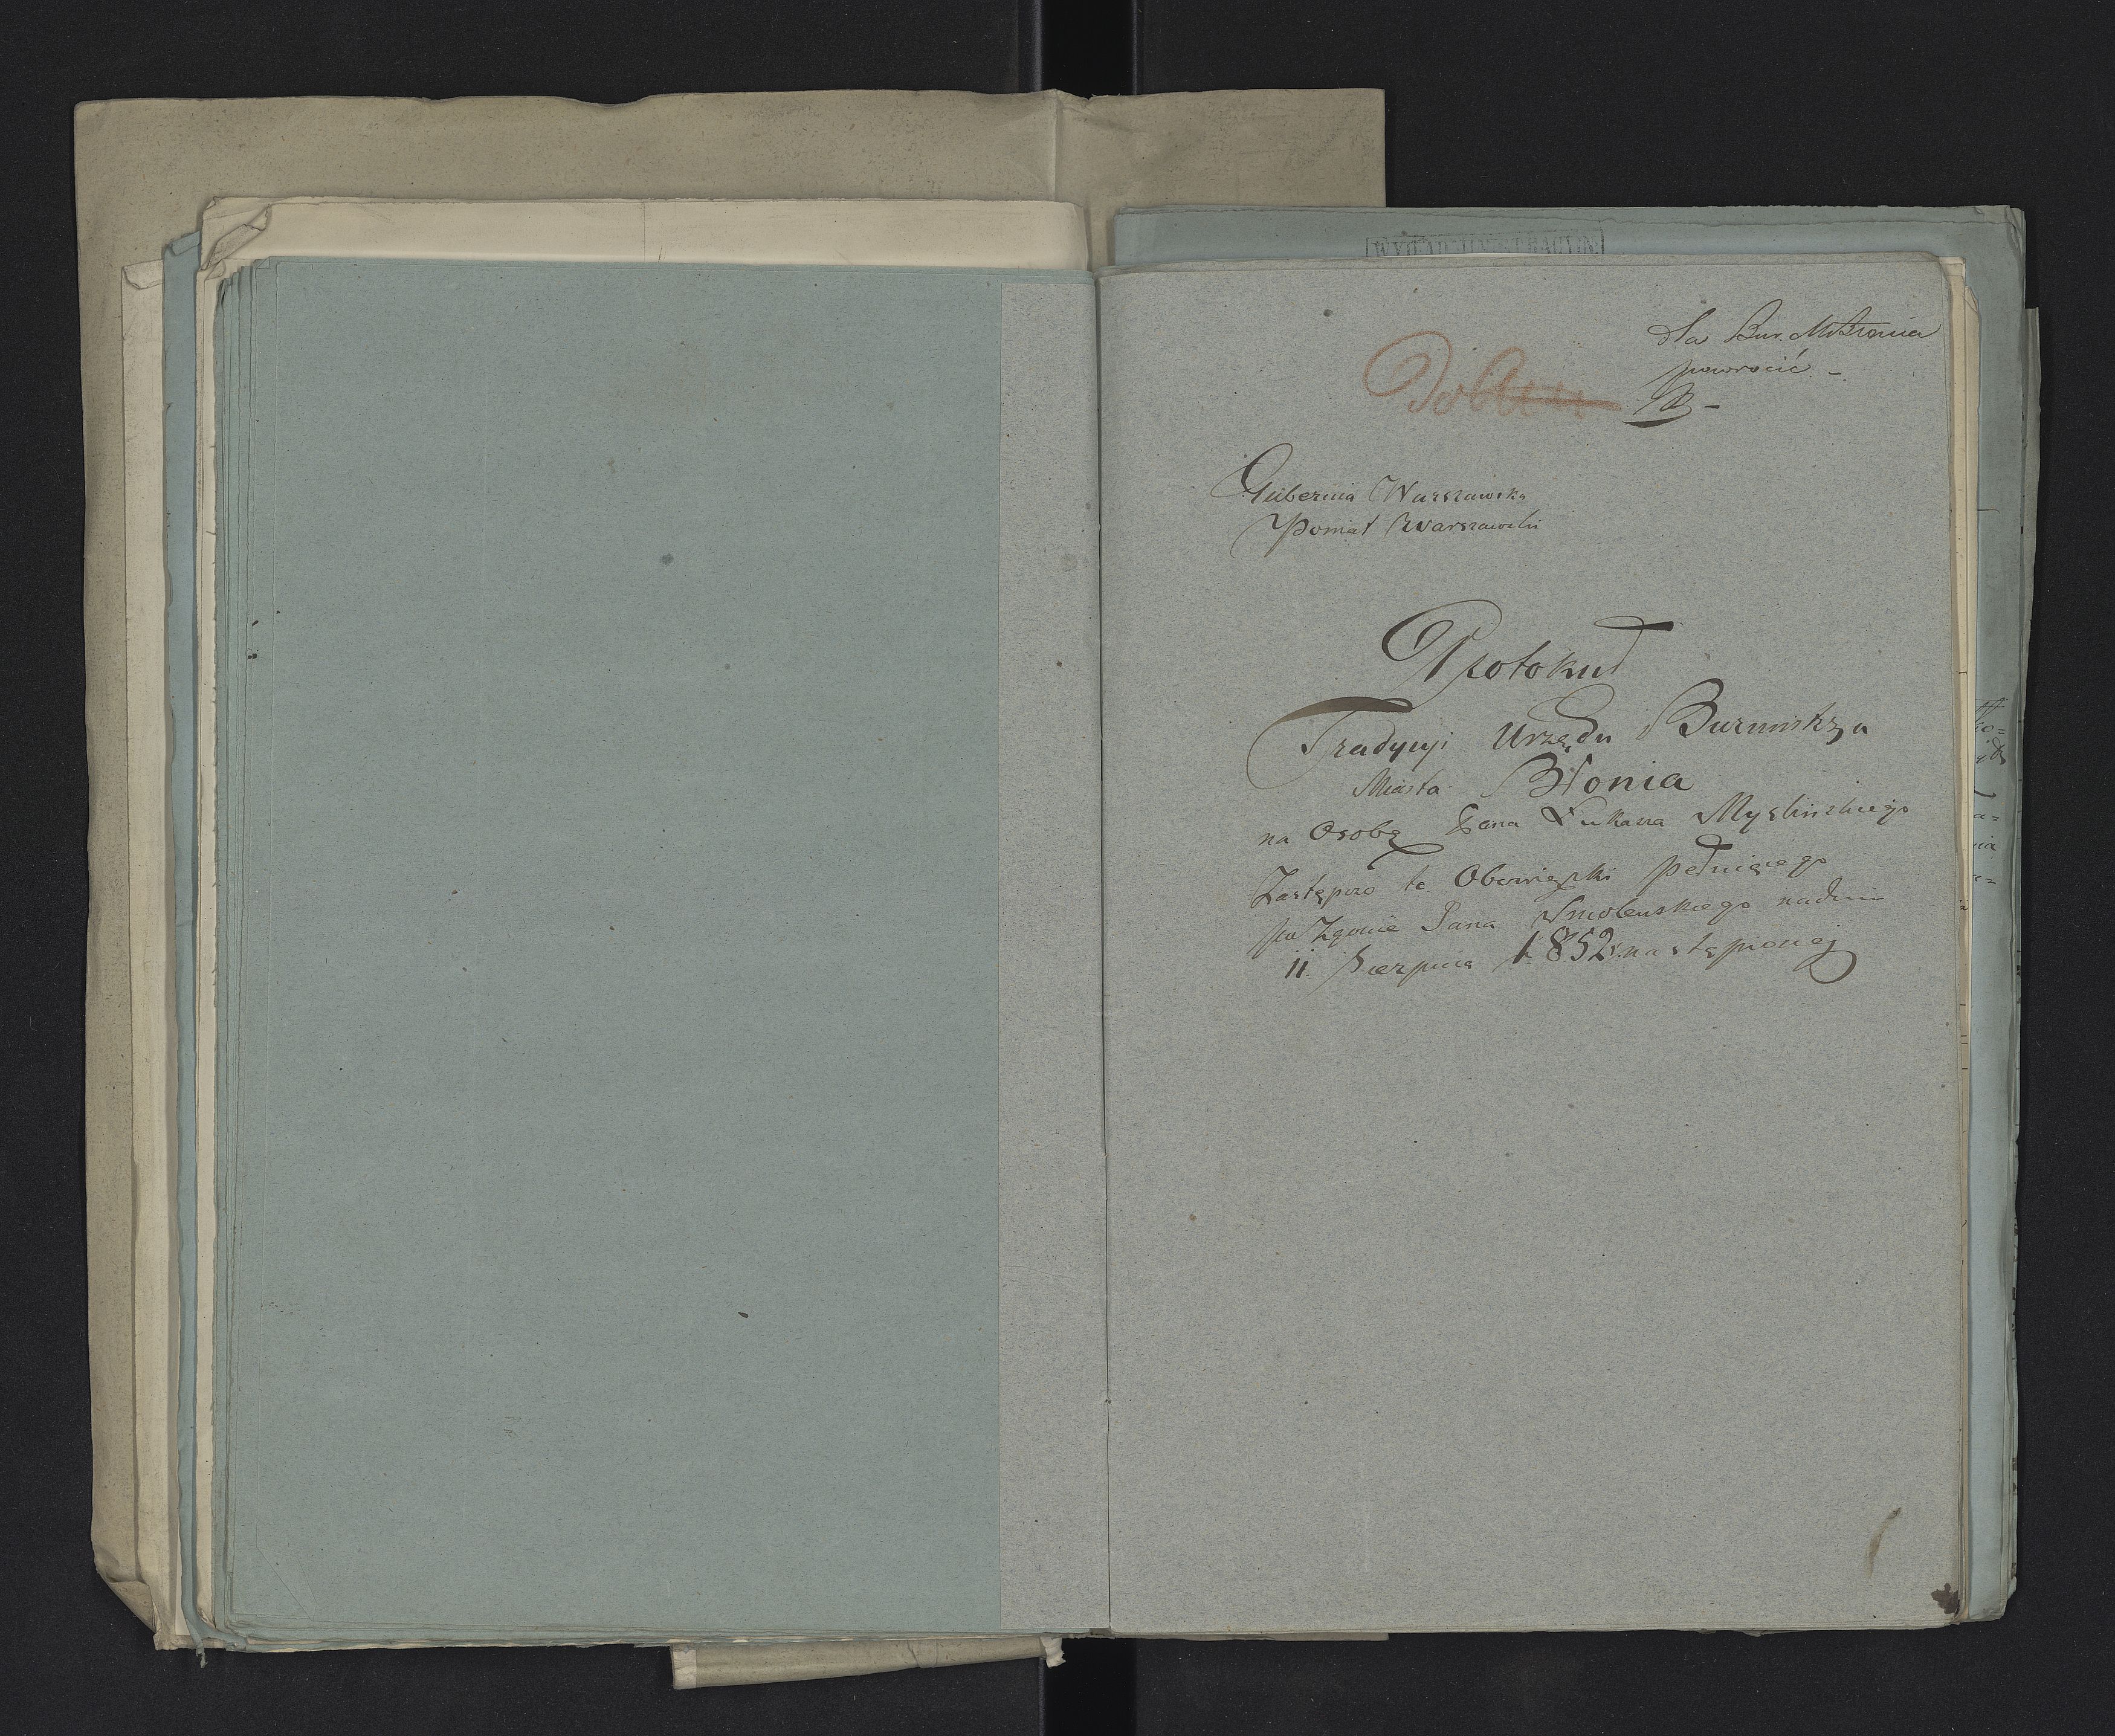 dla Bur. M. Błonia
powrócić –
Do
Gubernia Warszawska
Powiat Warszawski
Protokuł
Tradycyi Urzędu Burmistrza
Miasta Błonia
na Osobę Pana Łukasza Myslinskiego
Zastępczo te Obowiązki pełniącego
po Zgonie Pana Smolenskiego na dniu
11 Sierpnia 1852 r. nastąpionej